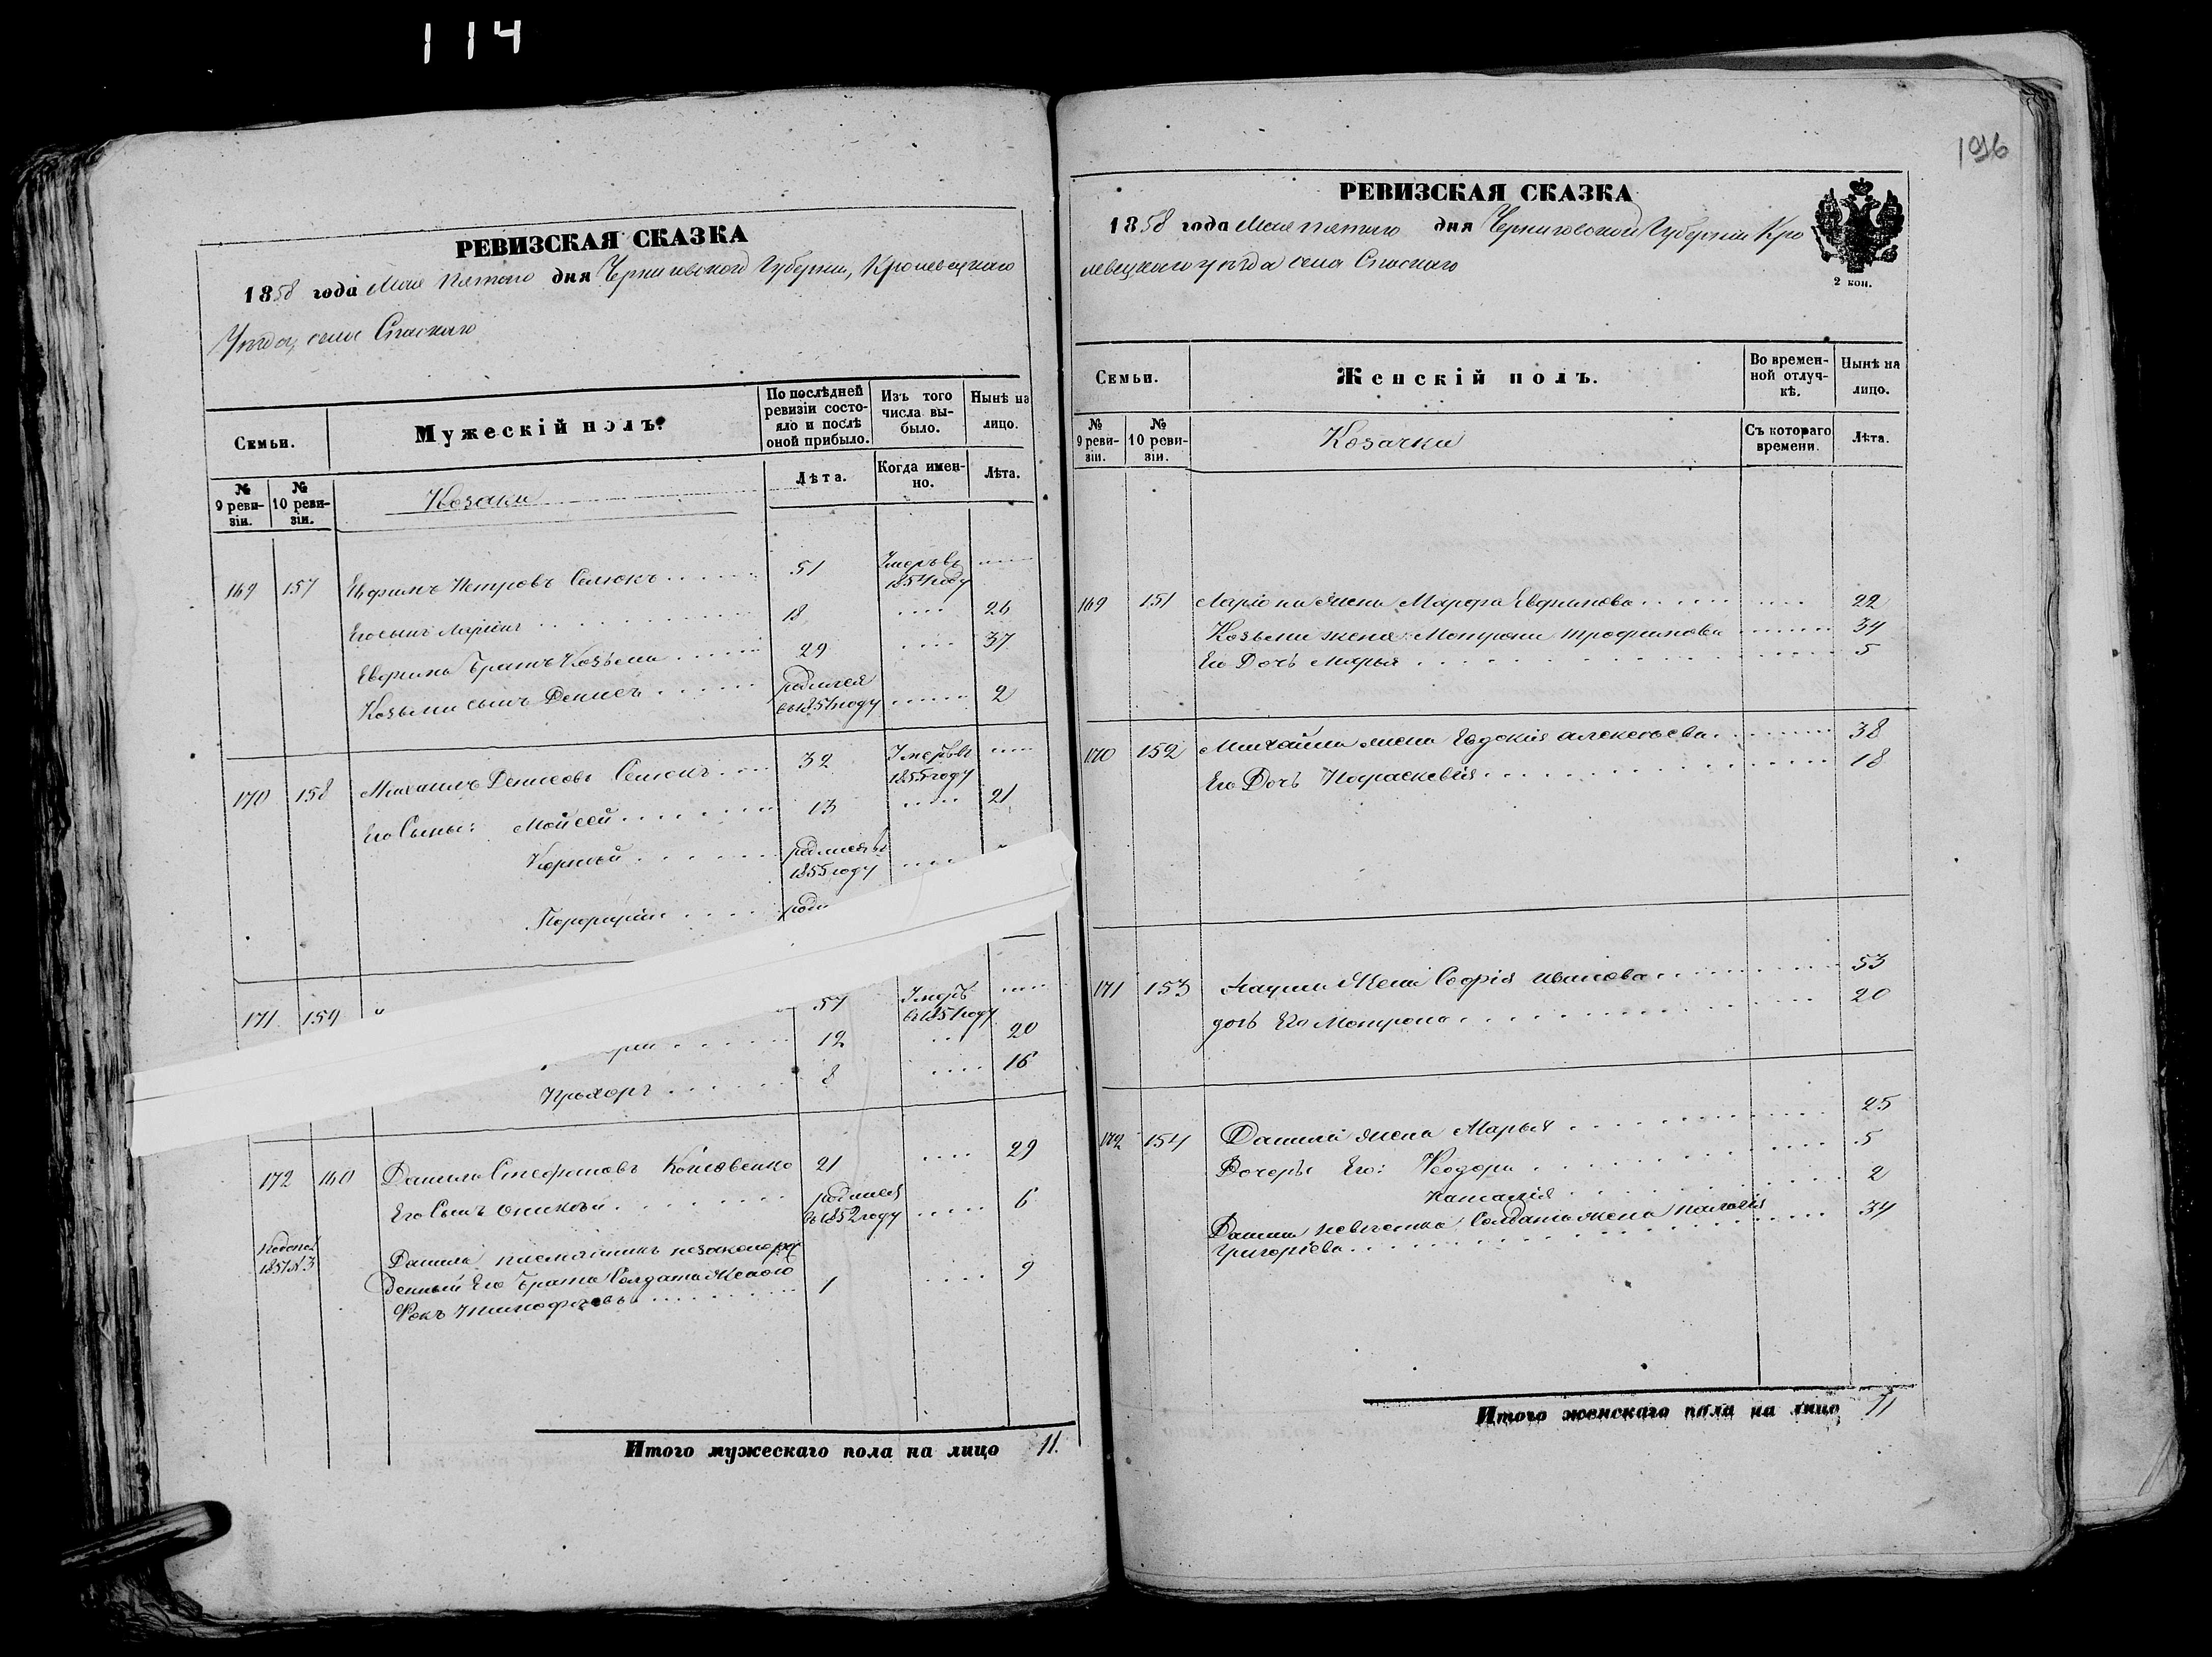 114
РЕВИЗСКАЯ СКАЗКА
1858 года Мая Пятого дня Черниговской Губернии, Кролевецкаго
Уѣзда, села Спаскаго
Семьи.
Мужескій полъ.
По послѣдней ревизіи состояло и послѣ оной прибыло.
Изъ того числа выбыло.
Нынѣ на лицо.
№ 9 ревизіи.
№ 10 ревизіи.
Козаки
Лѣта.
Когда именно.
Лѣта.
169 157 Евфимъ Петровъ Селюкъ 51 Умеръ въ 1854 году
Его сынъ Ларіонъ 18 26
Евфима братъ Козьма 29 37
Козьмы сынъ Денисъ родился въ 1856 году 2
170 158 Михаилъ Денисовъ Селюкъ 32 Умеръ въ 1855 году
Его Сыны: Мойсей 13 21
Корнѣй родился въ 1855 году
Порфирій роди
171 159 57 Умеръ в 1851 году
12 20
Прохоръ 8 16
172 160 Данило Стефановъ 21 29
Его Сынъ родился въ 1852 году 6
1851 N 3
Данила племянникъ незаконорож
денный Его брата Солдата женою
1 9
Итого мужескаго пола на лицо 11.
196
РЕВИЗСКАЯ СКАЗКА
1858 года Мая пятаго дня Черниговской Губерніи Кро
левецкаго уѣзда села Спаскаго
2 коп.
Семьи.
Женскій полъ.
Во временной отлучкѣ.
Нынѣ на лицо.
№ 9 ревизіи.
№ 10 ревизіи.
Козачки
Съ котораго времени.
Лѣта.
169 151 Ларіона жена Марфа Евфимова 22
Козьмы жена Матрона Трофимова 34
Его Дочь Марья 5
170 152 Михайла жена Евдокія Алексѣева 38
Его Дочь Параскевія 18
171 153 Наума Жена Софія Иванова 53
дочь Его Матрона 20
172 154 Данила жена Марья 25
Дочеры Его: Ѳеодора 5
Наталія 2
Данила невѣстка Солдата жена
Григорьева 34
Итого женскаго пола на лицо 11